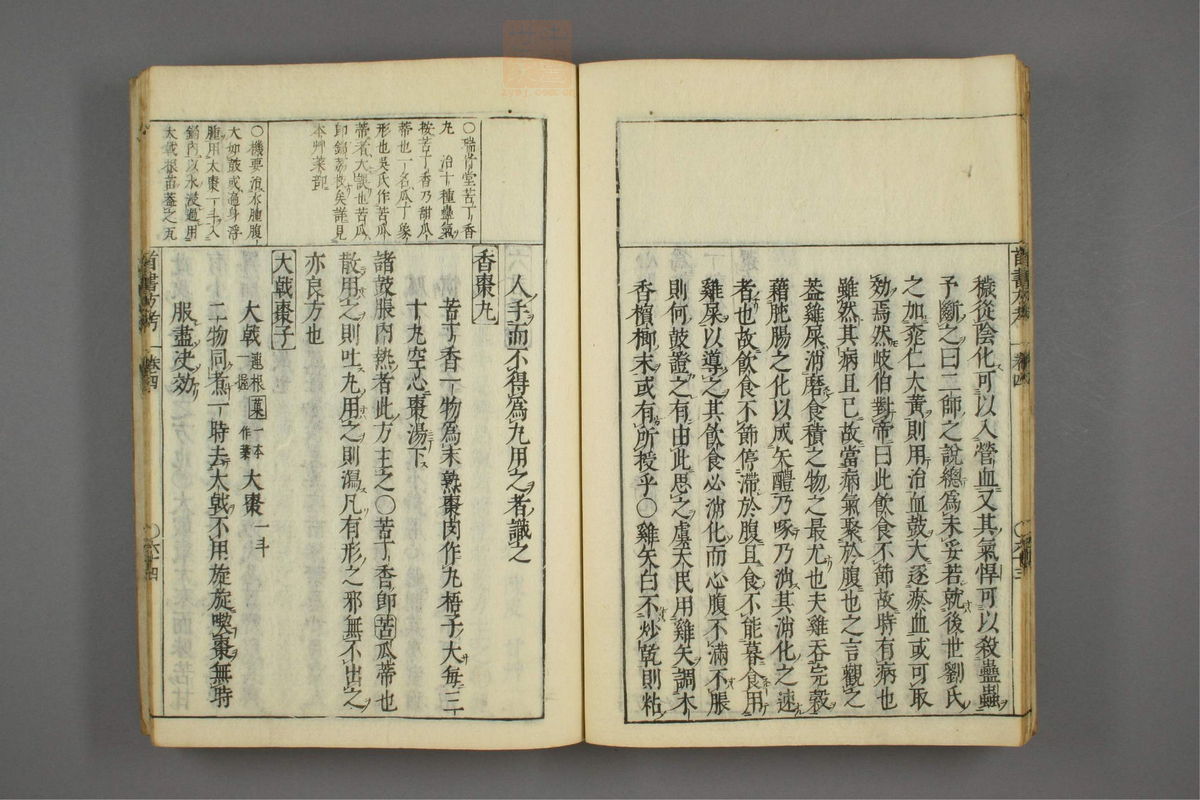 穢從陰化可以入營血又其氣悍可以殺蠱蟲
予斷之曰二師之說總爲未妥若就後世劉氏
之加桃仁大黃則用治血鼓大逐瘀血或可取
効焉然岐伯對帝曰此飲食不節故時有病也
雖然其病且已故當病氣聚於腹也之言觀之
葢雞屎消磨食積之物之最尤也夫雞吞完穀
藉肶腸之化以成矢醴乃啄乃消其消化之速
者也故飲食不節停滯於腹且食不能暮食用
雞屎以導之其飲食必消化而心腹不滿不脹
則何鼓證之有由此思之虞天民用雞矢調木
香檳榔末或有所授乎〇雞矢白不炒乾則粘
首書方考 卷四 〇六十三
人手而不得爲丸用之者識之
香棗丸
苦丁香一物爲末熟棗肉作丸梧子大每三
十丸空心棗湯下
諸鼓脹內熱者此方主之〇苦丁香即苦瓜蒂也
散用之則吐丸用之則瀉凡有形之邪無不出之
亦良方也
大戟棗子
大戟連根一握菓一本作葉 大棗一斗
二物同煮一時去大戟不用旋旋喫棗無時
服盡決効
〇瑞竹堂苦丁香
丸 治十種蠱氣
按苦丁香乃甜瓜
蒂也一名瓜丁象
形也吳氏作苦瓜
蒂者大誤也苦瓜
即錦荔枝矣詳見
本艸菜部
〇機要治水腫腹
大如鼓或遍身浮
腫用大棗一斗入
鍋內以水浸過用
大戟根苗葢之瓦
首書方考 卷四 〇六十四